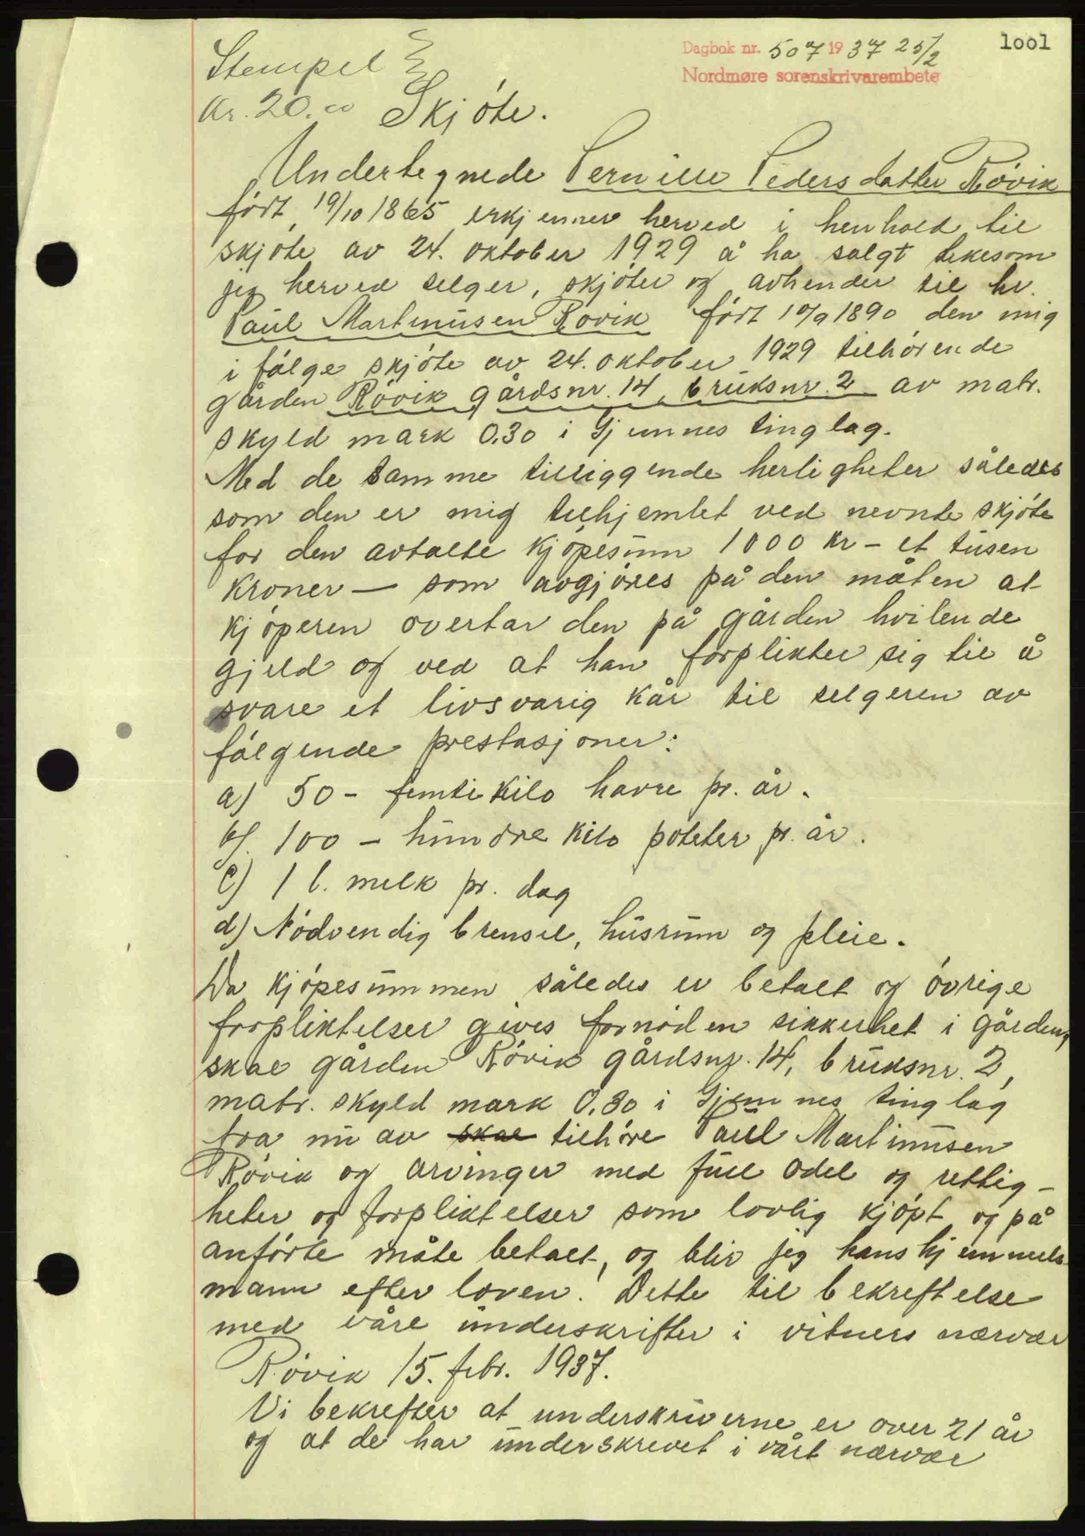 Dagbok nr. 507 1937 25/2
1001
Nordmøre sorenskrivarembete
Stempel
Kr. 20.00 Skjöte.
Undertegnede Pernille Pedersdatter Rövik
född 19/10 1865 erkjenner herved i henhold til
skjöte av 24. oktober 1929 å ha solgt likesom
jeg herved selger, skjöter og avhender til hr.
Paul Martinusen Rövik född 10/9 1890 den mig
i fölge skjöte av 24. oktober 1929 tilhörende
gården Rövik gårdsnr. 14, bruksnr. 2 av matr.
skyld mark 0,30 i Gjemnes tinglag.
Med de samme tilliggende herligheter således
som den er mig tilhjemlet ved nevnte skjöte
for den avtalte kjöpesum 1000 kr - et tusen
kroner — som avgjöres på den måten at
kjöperen overtar den på gården hvilende
gjeld og ved at han forplikter sig til å
svare et livsvarig kår til selgeren av
fölgende prestasjoner:
a) 50 - femti kilo havre pr. år.
b). 100 - hundre kilo poteter pr. år.
c) 1 l. melk pr. dag
d) Nödvendig brensel, husrum og pleie.
Da kjöpesummen således er betalt og övrige
forpliktelser gives fornöden sikkerhet i gården,
skal gården Rövik gårdsnr. 14, bruksnr. 2,
matr. skyld mark 0,30 i Gjemnes tinglag
fra nu av skal tilhöre Paul Martinusen
Rövik og arvinger med full odel og rettig-
heter og forpliktelser som lovlig kjöpt og på
anförte måte betalt, og blir jeg hans hjemmels-
mann efter loven. Dette til bekreftelse
med våre underskrifter i vitners nærvær
Rövik 15. febr. 1937.
Vi bekrefter at underskriverne er over 21 år
og at de har underskrevet i vårt nærvær